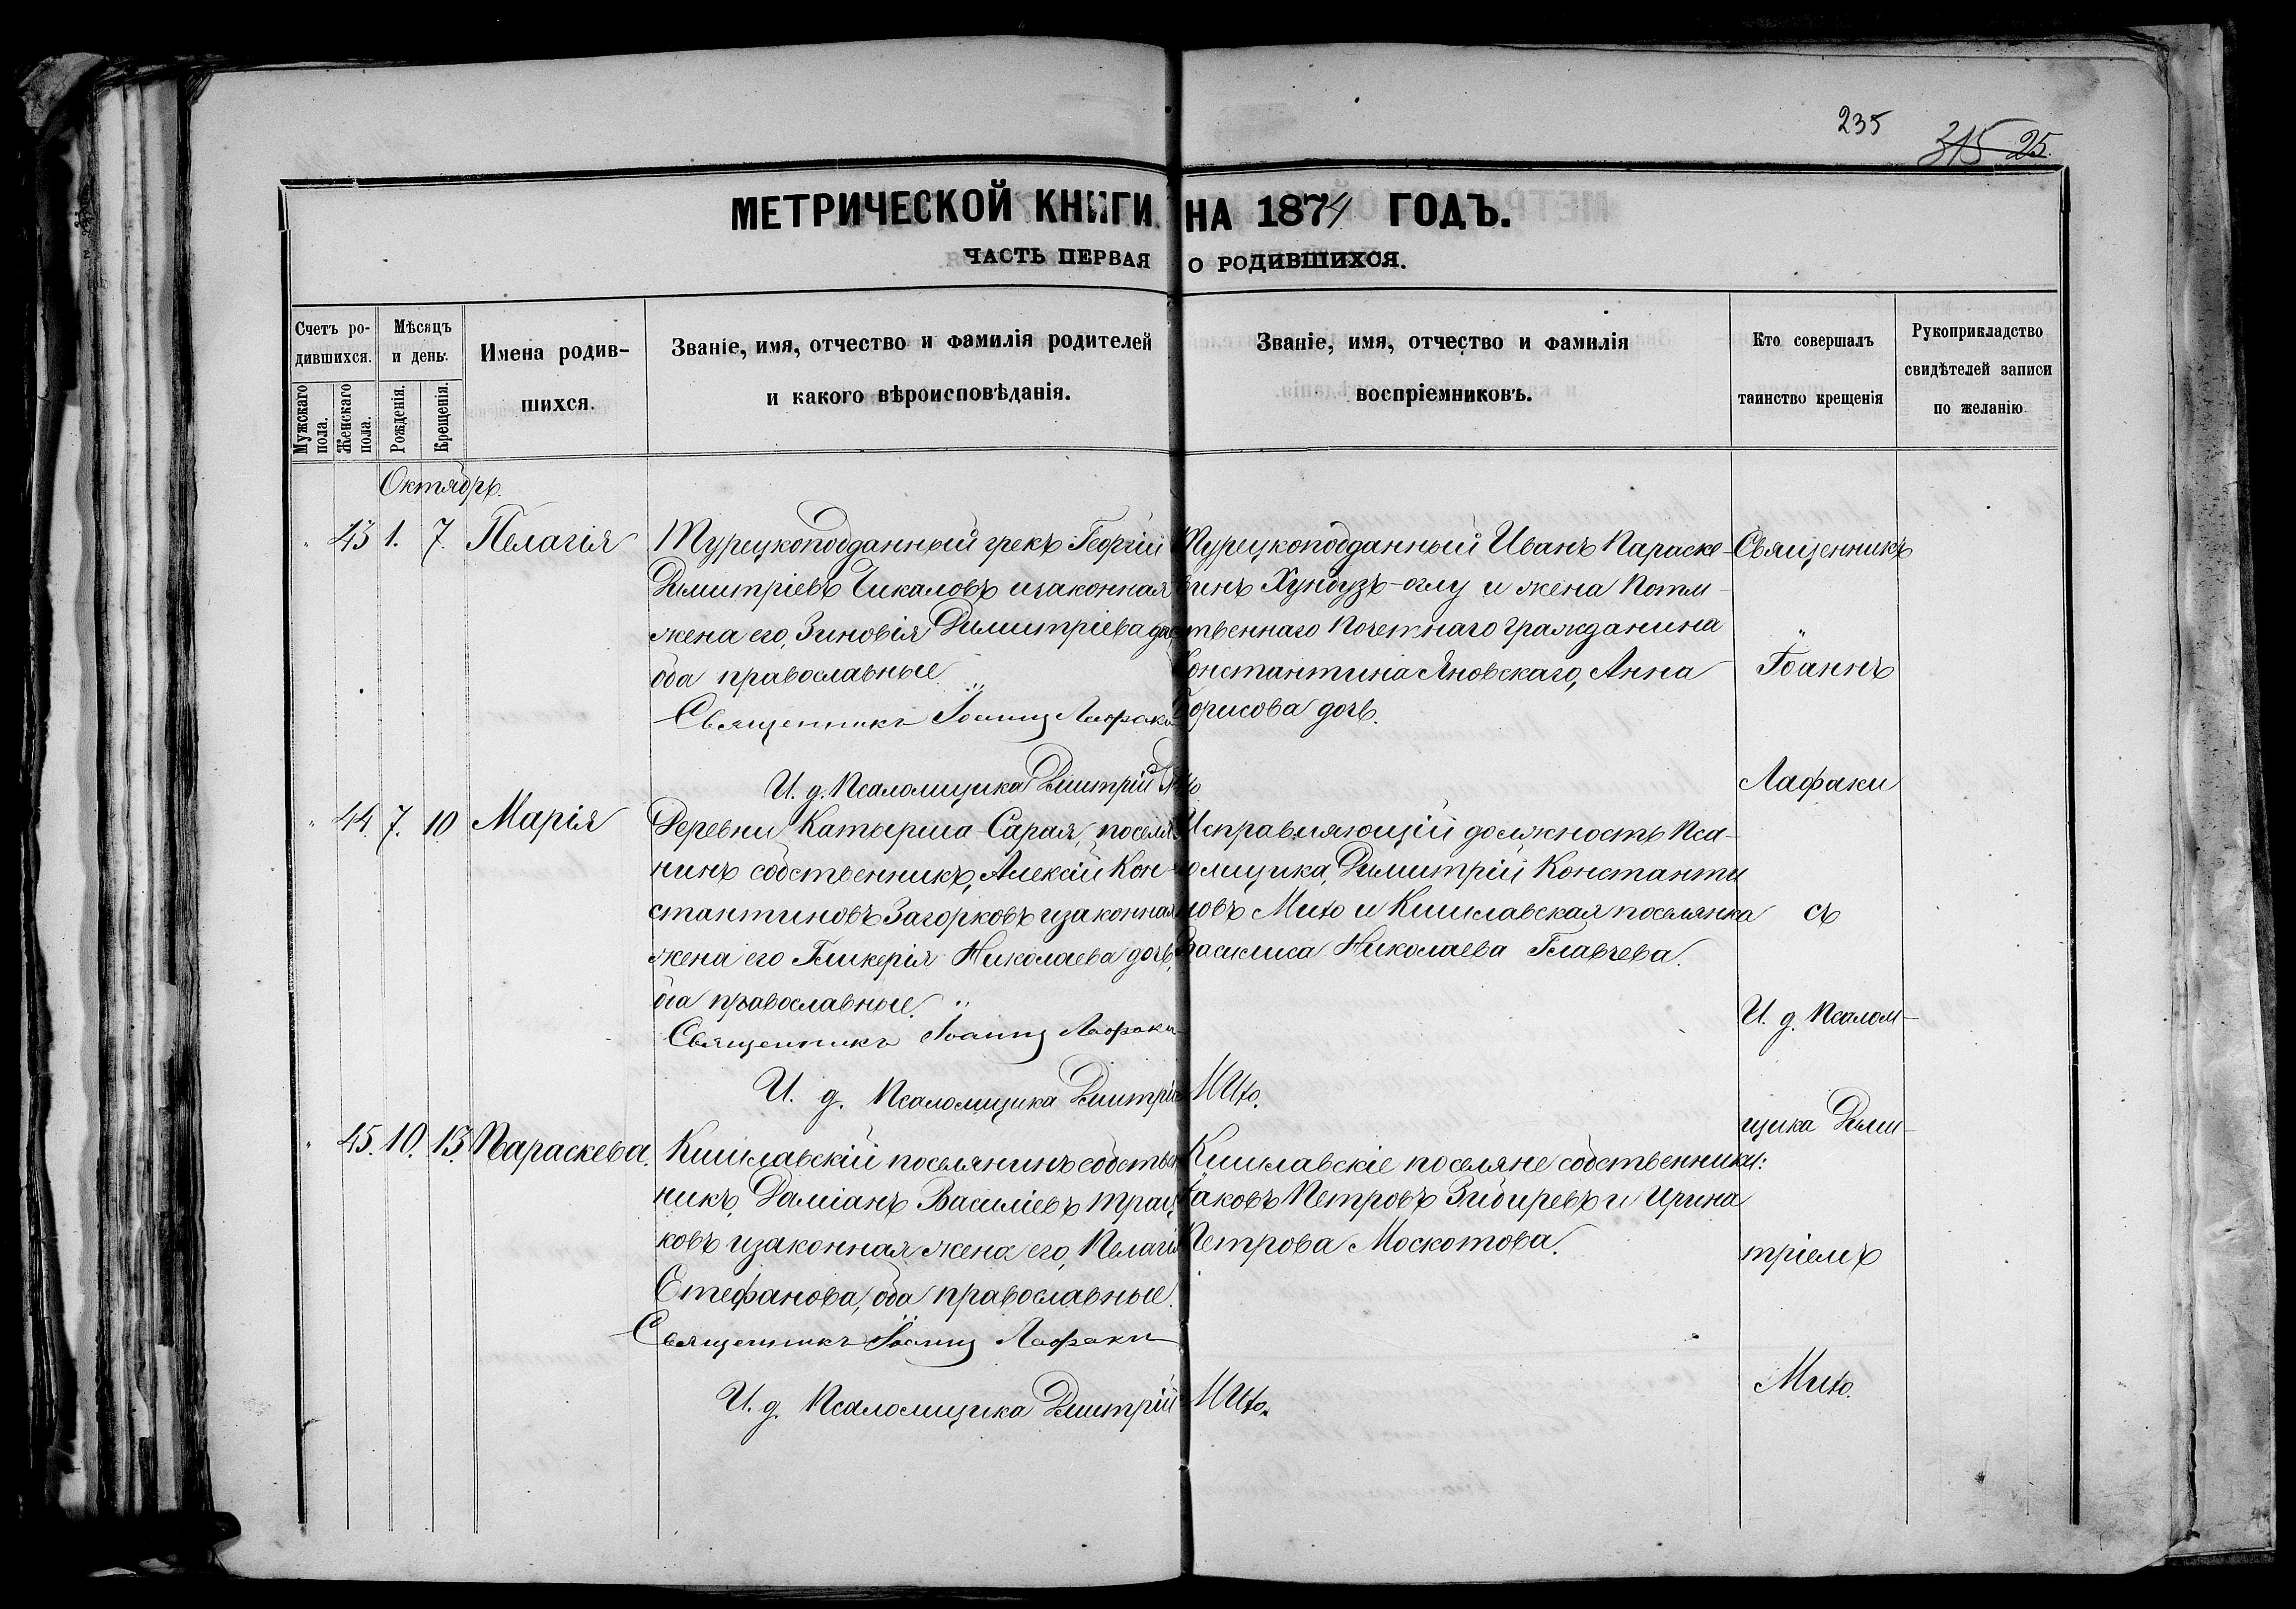 235
315 25.
МЕТРИЧЕСКОЙ КНИГИ НА 1874 ГОДЪ.
ЧАСТЬ ПЕРВАЯ О РОДИВШИХСЯ.
Счетъ ро-
дившихся.
Мужскаго
пола.
Женскаго
пола.
Мѣсяцъ
и день.
Рожденія.
Крещенія.
Имена родив-
шихся.
Званіе, имя, отчество и фамилія родителей
и какого вѣроисповѣданія.
Званіе, имя, отчество и фамилія
воспріемниковъ.
Кто совершалъ
таинство крещенія
Рукоприкладство
свидѣтелей записи
по желанію
Октябрь.
" 43 1. 7. Пелагія
Турецкоподданный грекъ Георгій
Димитріевъ Чикаловъ изаконная
жена его, Зиновія Димитріева
оба православные
Священникъ Іоаннъ Лафаки
И. д. Псаломщика Дмитрій
Турецкоподданный Иванъ Параске-
винъ Хундузъ-оглу и жена Потом-
ственнаго Почетнаго Гражданина
Константина Яновскаго, Анна
Борисова дочь.
" 44. 7. 10 Марія
Деревни Катырша-Сарая, поселя-
нинъ собственникъ, Алексій Кон-
стантиновъ Загорковъ изаконная
жена его Гликерія Николаева дочь,
оба православные.
Священникъ Іоаннъ Лафаки
И. д. Псаломщика Дмитрій Мито.
Исправляющій должность Пса-
ломщика, Димитрій Константи
новъ Мито и Кишлавская поселянка
Василиса Николаева Главчева.
" 45. 10. 13. Параскева.
Кишлавскій поселянинъ собствен
никъ, Даміанъ Василіевъ
ковъ изаконная жена его, Пелагія
Стефанова, оба православные.
Священникъ Іоаннъ Лафаки
И. д. Псаломщика Дмитрій Мито.
Кишлавскіе поселяне собственники:
Іаковъ Петровъ Зибиревъ и Ирина
Петрова Москотова.
Священникъ
"
Іоаннъ
Лафаки
съ
И. д. Псалом-
щика Дими-
тріемъ
Мито.